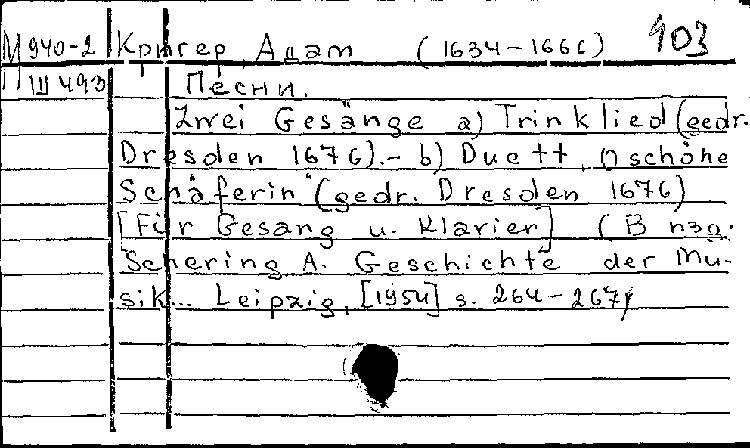 М 940-2 Кригер, Адам (1634-1666) 903
П Ш 493 Песни.
Zwei Gesänge a) Trinklied (gedr.
Dresden 1676).- b) Duett „O schöne
Schäferin" (gedr. Dresden 1676)
[Für Gesang u. Klavier] (В изд.
Schering A. Geschichte der Mu-
sik... Leipzig, [1954] s. 264-267)